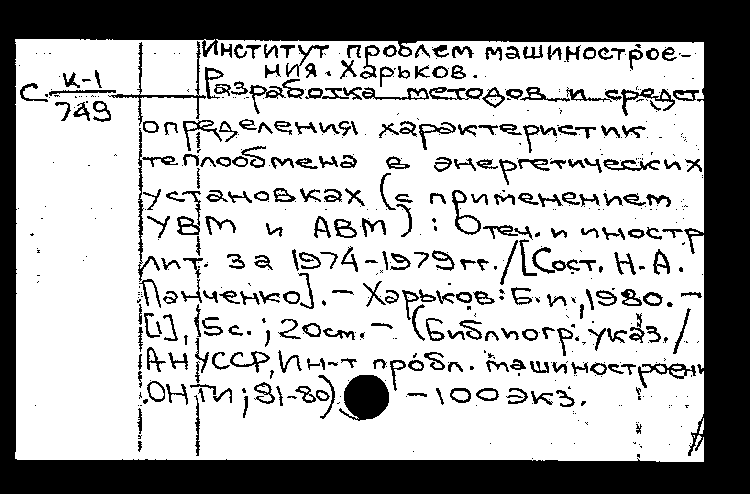 Институт проблем машинострое-
ния. Харьков.
С К-1
749
Разработка методов и средств
определения характеристик
теплообмена в энергетических
установках (с применением
УВМ и АВМ) : Отеч. и иностр
лит. за 1974-1979 гг. / [Сост. Н.А.
Панченко]. - Харьков: Б.и., 1980. -
[1], 15 с. ; 20 см. - (Библиогр. указ. /
АН УССР, Ин-т пробл. машиностроени
ОНТИ ; 81-80) - 100 экз.